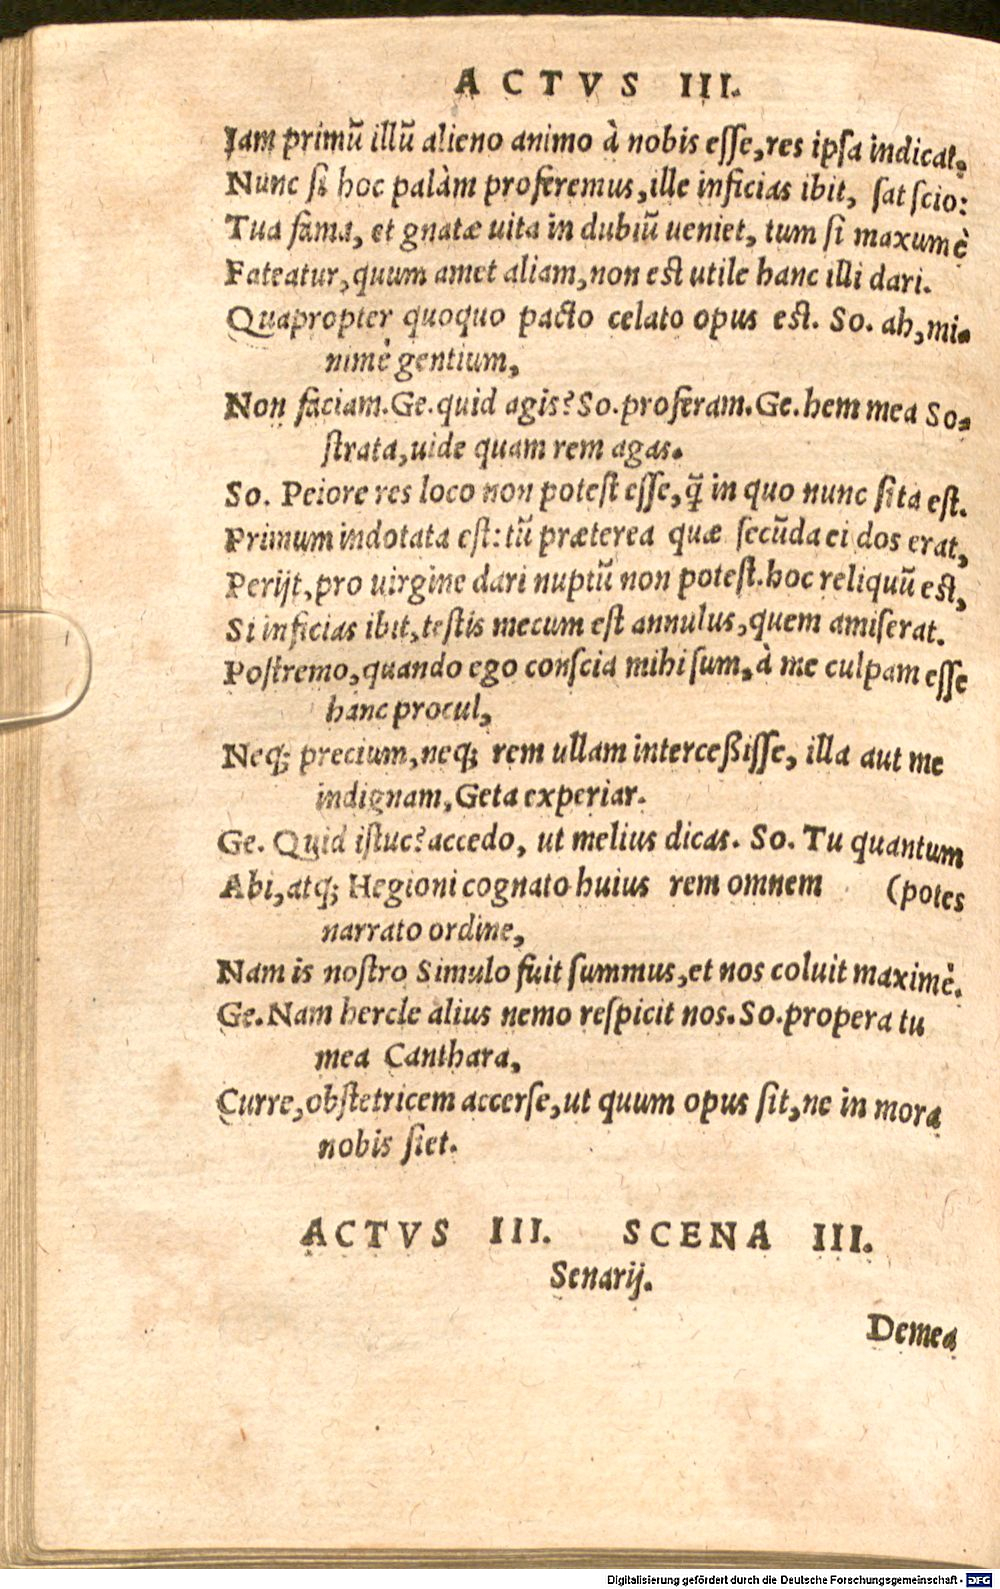 ACTVS III.
Iam primũ illũ alieno animo à nobis esse, res ipsa indicat.
Nunc si hoc palàm proferemus, ille inficias ibit, sat scio:
Tua fama, et gnatæ uita in dubiũ ueniet, tum si maxumè
Fateatur, quum amet aliam, non est utile hanc illi dari.
Quapropter quoquo pacto celato opus est. So. ah, mi-
nimè gentium,
Non faciam. Ge. quid agis? So. proferam. Ge. hem mea So-
strata, uide quam rem agas.
So. Peiore res loco non potest esse, q̃ in quo nunc sita est.
Primum indotata est: tũ præterea quæ secũda ei dos erat,
Perijt, pro uirgine dari nuptũ non potest. hoc reliquũ est,
Si inficias ibit, testis mecum est annulus, quem amiserat.
Postremo, quando ego conscia mihi sum, à me culpam esse
hanc procul,
Neq; precium, neq; rem ullam interceßisse, illa aut me
indignam, Geta experiar.
Ge. Quid istuc? accedo, ut melius dicas. So. Tu quantum
Abi, atq; Hegioni cognato huius rem omnem (potes
narrato ordine,
Nam is nostro Simulo fuit summus, et nos coluit maximè.
Ge. Nam hercle alius nemo respicit nos. So. propera tu
mea Canthara,
Curre, obstetricem accerse, ut quum opus sit, ne in mora
nobis siet.
ACTVS III. SCENA III.
Senarij.
Demea
Digitalisierung gefördert durch die Deutsche Forschungsgemeinschaft - DFG